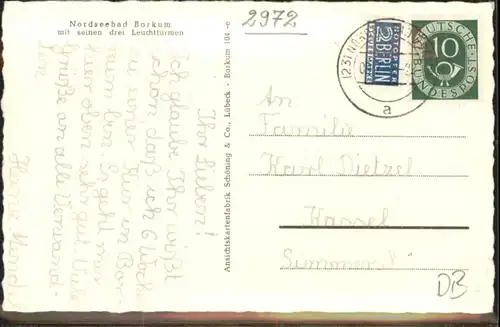 Nordseebad Borkum
mit seinen drei Leuchttürmen
2972
Ihr Lieben!
Ich glaube Ihr wißt
schon daß ich 6 Woche
zu einer Kur in Bor-
kum bin. Es geht mir
hier oben sehr gut. Viele
Grüße an alle Verwand-
ten
Ansichtskartenfabrik Schöning & Co., Lübeck - Borkum 104 -e
NOTOPFER
2 BERLIN
STEUERMARKE
DEUTSCHE
BUNDESPOST
10
(23)
a
An
Familie
Karl Dietzel
Kassel
DB